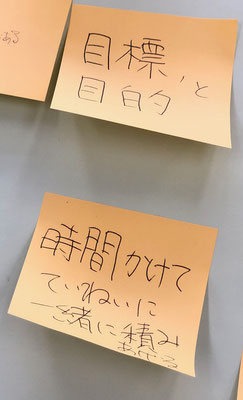 ある
目標、と
目的
時間かけて
ていねいに
一緒に積み
あげる